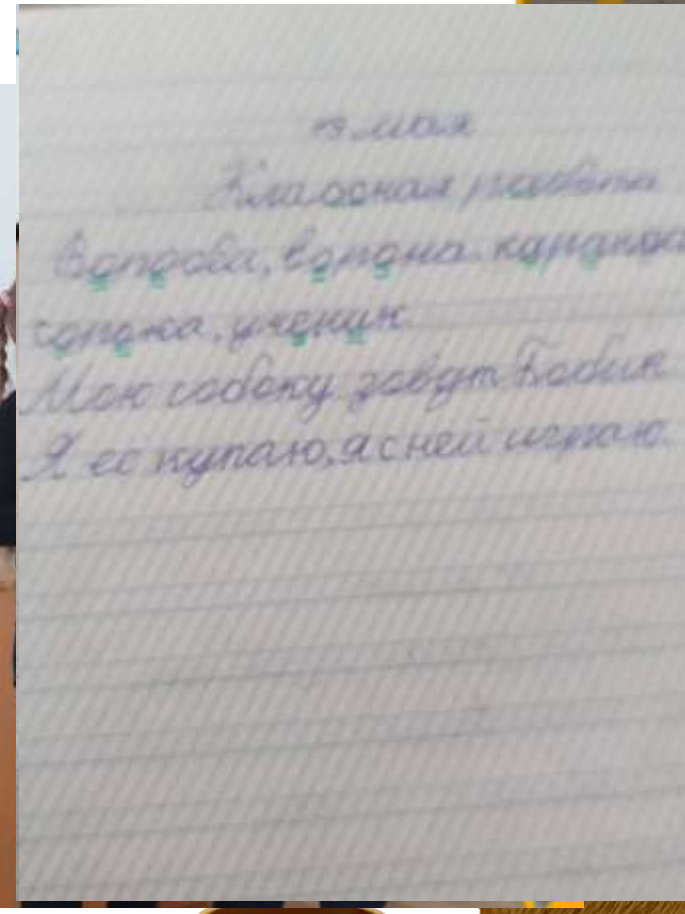 мая
Классная работа
ворона
сорока, ученик.
Мою собаку зовут Бобик
Я её купаю, я с ней играю.